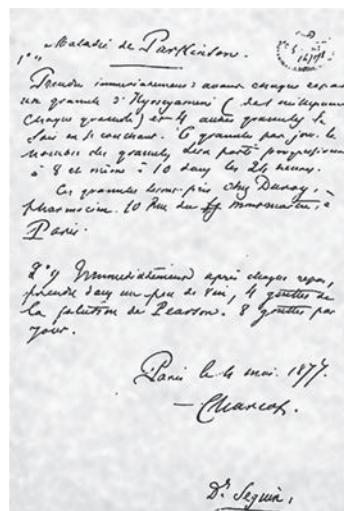 1° Maladie de Parkinson.
Prendre immédiatement avant chaque repas
un granule d'Hyosciamine ( de milligramme
chaque granule) et 4 autres granules le
soir en se couchant. 6 granules par jour. le
nombre des granules sera porté progressivement
à 8 et même à 10 dans les 24 heures.
Ces granules seront pris chez Duroy,
pharmacien. 10 Rue du Montmartre, à
Paris.
2° Immédiatement après chaque repas,
prendre dans un peu de vin, 4 gouttes de
la solution de Pearson. 8 gouttes par
jour.
Paris le 4 mai 1877.
— Charcot.
Dr Seguin,